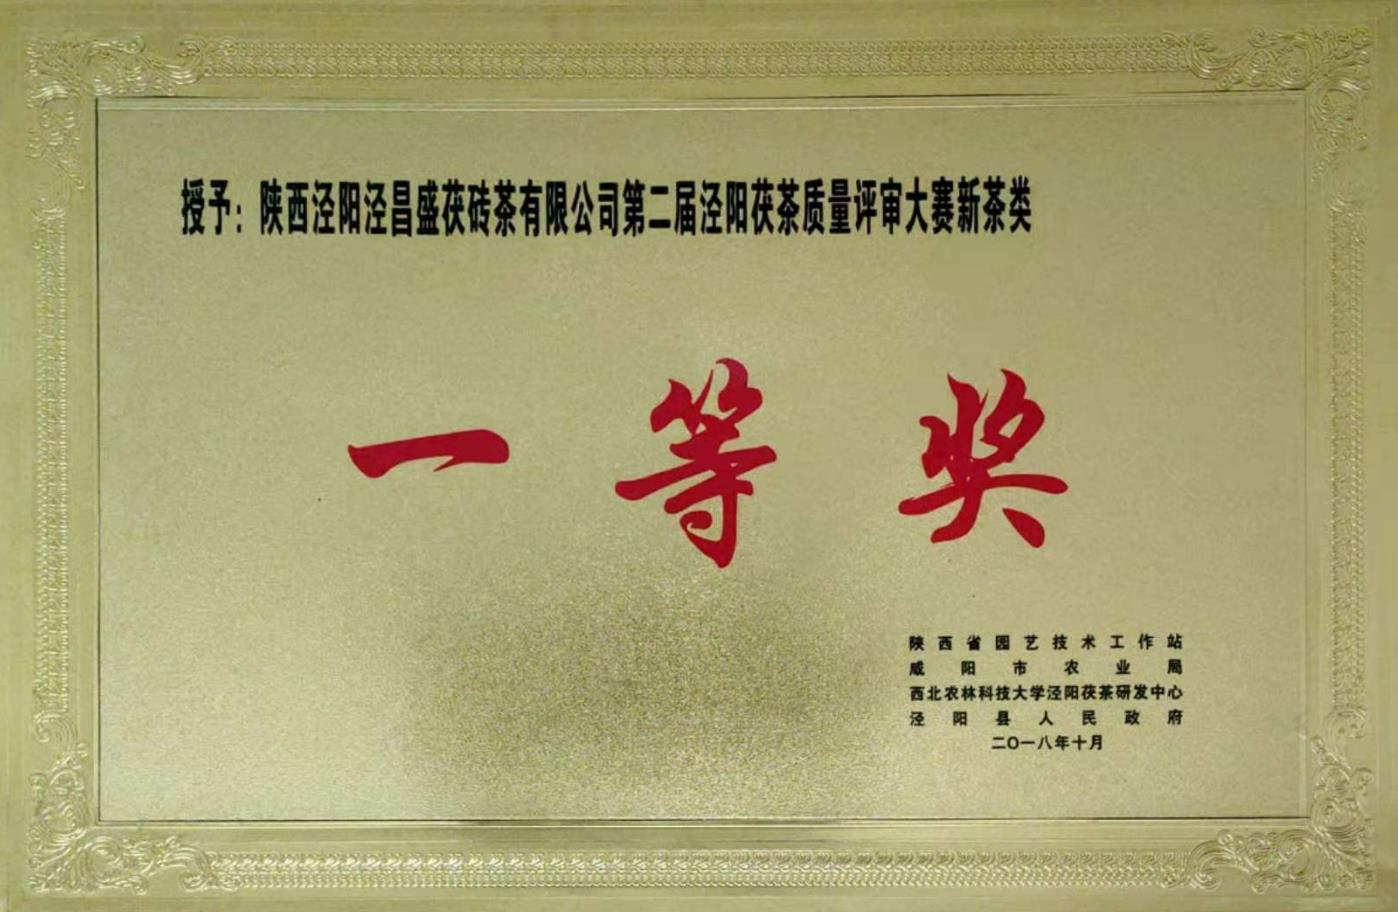 授予：陕西泾阳泾昌盛茯砖茶有限公司第二届泾阳茯茶质量评审大赛新茶类
一等奖
陕西省园艺技术工作站
咸阳市农业局
西北农林科技大学泾阳茯茶研发中心
泾阳县人民政府
二〇一八年十月